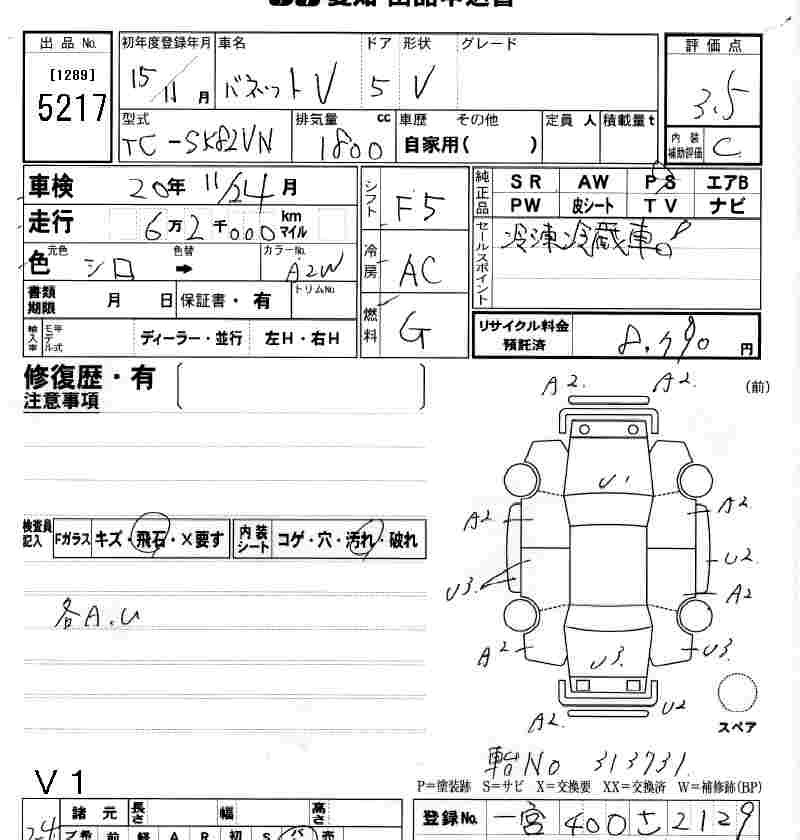 愛知 出品申込書
出品No. 初年度登録年月 車名 ドア 形状 グレード 評価点
[1289]
5217
15/11月 バネットV 5 V 3.5
型式 排気量 cc 車歴 その他 定員 人 積載量 t 内装補助評価
TC-SK82VN 1800 自家用( ) C
車検 20年 11/24月 シフト F5 純正品 SR AW PS エアB
PW 皮シート TV ナビ
走行 6万2千000 km マイル
セールスポイント 冷凍冷蔵車。
色 元色 色替 カラーNo. 冷房 AC
シロ ➡ A2W
書類期限 月 日 保証書・有 トリムNo. 燃料 G
輸入車 モデル年式 ディーラー・並行 左H・右H リサイクル料金預託済 8,790円
修復歴・有
注意事項
(前)
A2. A2.
U1
A2 A2
U2
U3. A2
A2 U3. U3
A2. U2
スペア
検査員記入 Fガラス キズ・飛石・×要す 内装シート コゲ・穴・汚れ・破れ
各A.U
車台No 313731.
V1
P=塗装跡 S=サビ X=交換要 XX=交換済 W=補修跡(BP)
諸元 長さ 幅 高さ
登録No. 一宮 400 さ 2129